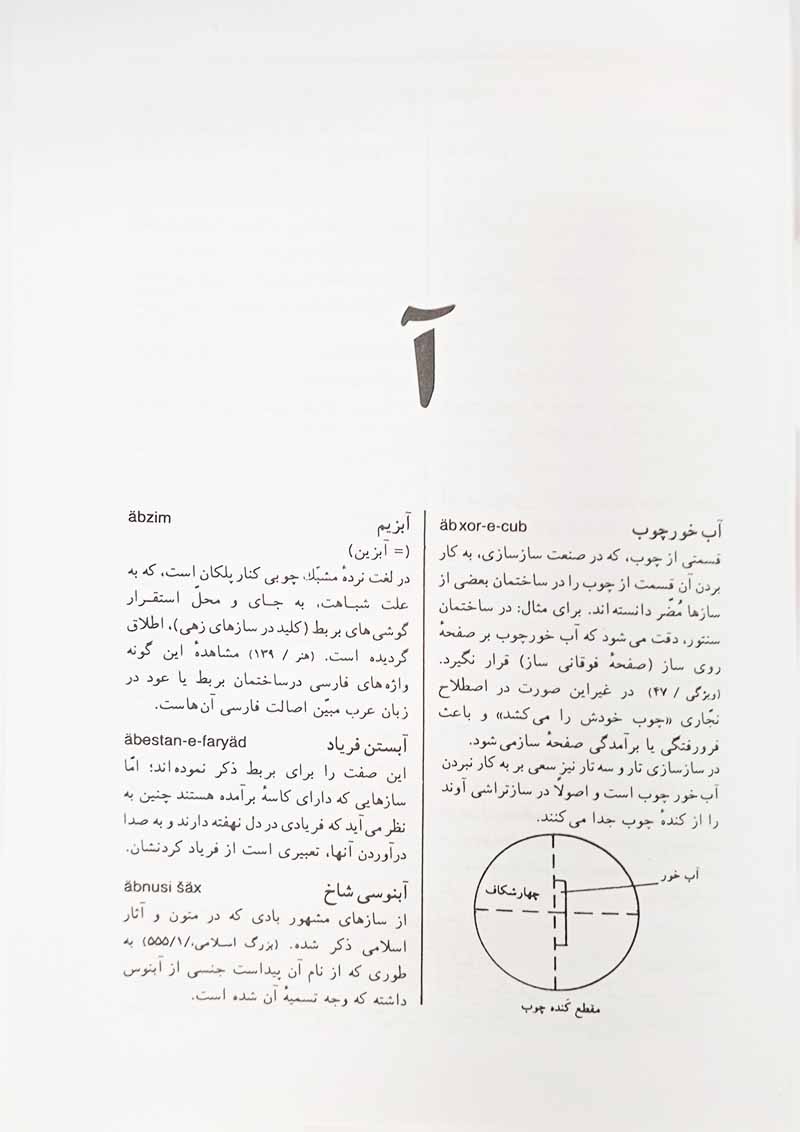 آ
آب خور چوب äbxor-e-cub
قسمتی از چوب، که در صنعت سازسازی، به کار
بردن آن قسمت از چوب را در ساختمان بعضی از
سازها مُضّر دانسته‌اند. برای مثال: در ساختمان
سنتور، دقت می‌شود که آب خورچوب بر صفحهٔ
روی ساز (صفحهٔ فوقانی ساز) قرار نگیرد.
(ویژگی / ۴۷) در غیراین صورت در اصطلاح
نجّاری «چوب خودش را می‌کشد» و باعث
فرورفتگی یا برآمدگی صفحهٔ سازمی‌شود.
در سازسازی تار و سه‌تار نیز سعی بر به کار نبردن
آب‌خور چوب است و اصولاً در سازتراشی آوند
را از کندهٔ چوب جدا می‌کنند.
آب خور
چهارشکاف
مقطع کُنده چوب
آبزیم äbzim
(= آبزین)
در لغت نردهٔ مشبّك چوبی کنار پلکان است، که به
علت شباهت، به جای و محلّ استقرار
گوشی‌های بربط (کلید در سازهای زهی)، اطلاق
گردیده است. (هنر / ۱۳۹) مشاهدهٔ این گونه
واژه‌های فارسی درساختمان بربط یا عود در
زبان عرب مبیّن اصالت فارسی آن‌هاست.
آبستن فریاد äbestan-e-faryäd
این صفت را برای بربط ذکر نموده‌اند؛ امّا
سازهایی که دارای کاسهٔ برآمده هستند چنین به
نظر می‌آید که فریادی در دل نهفته دارند و به صدا
درآوردن آنها، تعبیری است از فریاد کردنشان.
آبنوسی شاخ äbnusi šäx
از سازهای مشهور بادی که در متون و آثار
اسلامی ذکر شده. (بزرگ اسلامی،/۵۵۵/۱) به
طوری که از نام آن پیداست جنسی از آبنوس
داشته که وجه تسمیهٔ آن شده است.